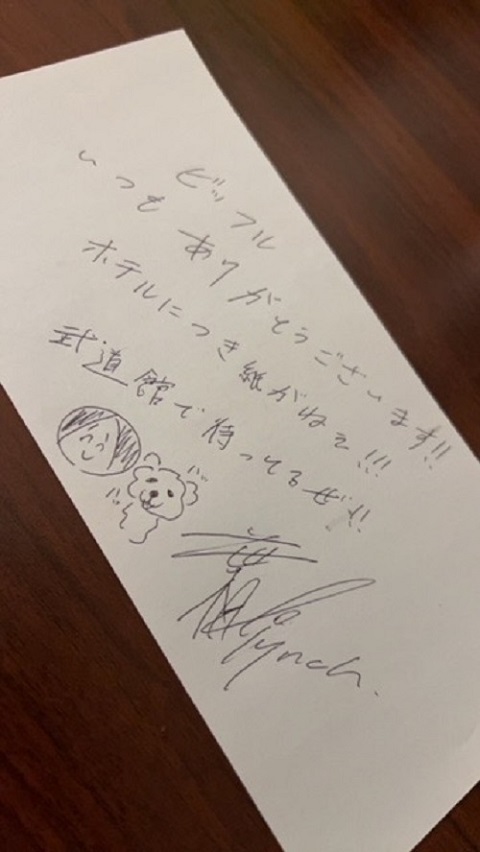 ビッフル
いつも ありがとうございます!!
ホテルにつき紙がねぇ!!!
武道館で待ってるぜ!!
lynch.